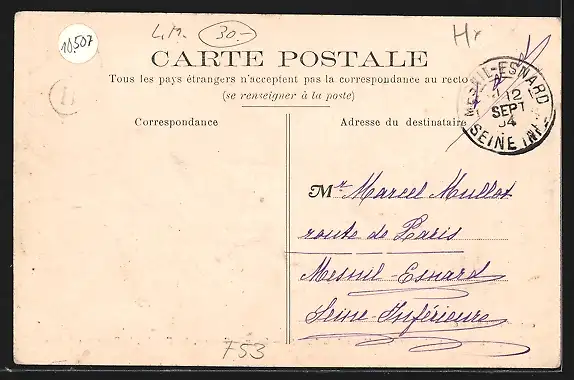 10,507
30-
Hr
CARTE POSTALE
Tous les pays étrangers n'acceptent pas la correspondance au recto
(se renseigner à la poste)
MESNIL-ESNARD
12
SEPT
04
SEINE INF.
Correspondance
Adresse du destinataire
Mr Marcel Mullot
route de Paris
Mesnil-Esnard
Seine-Inférieure
F53